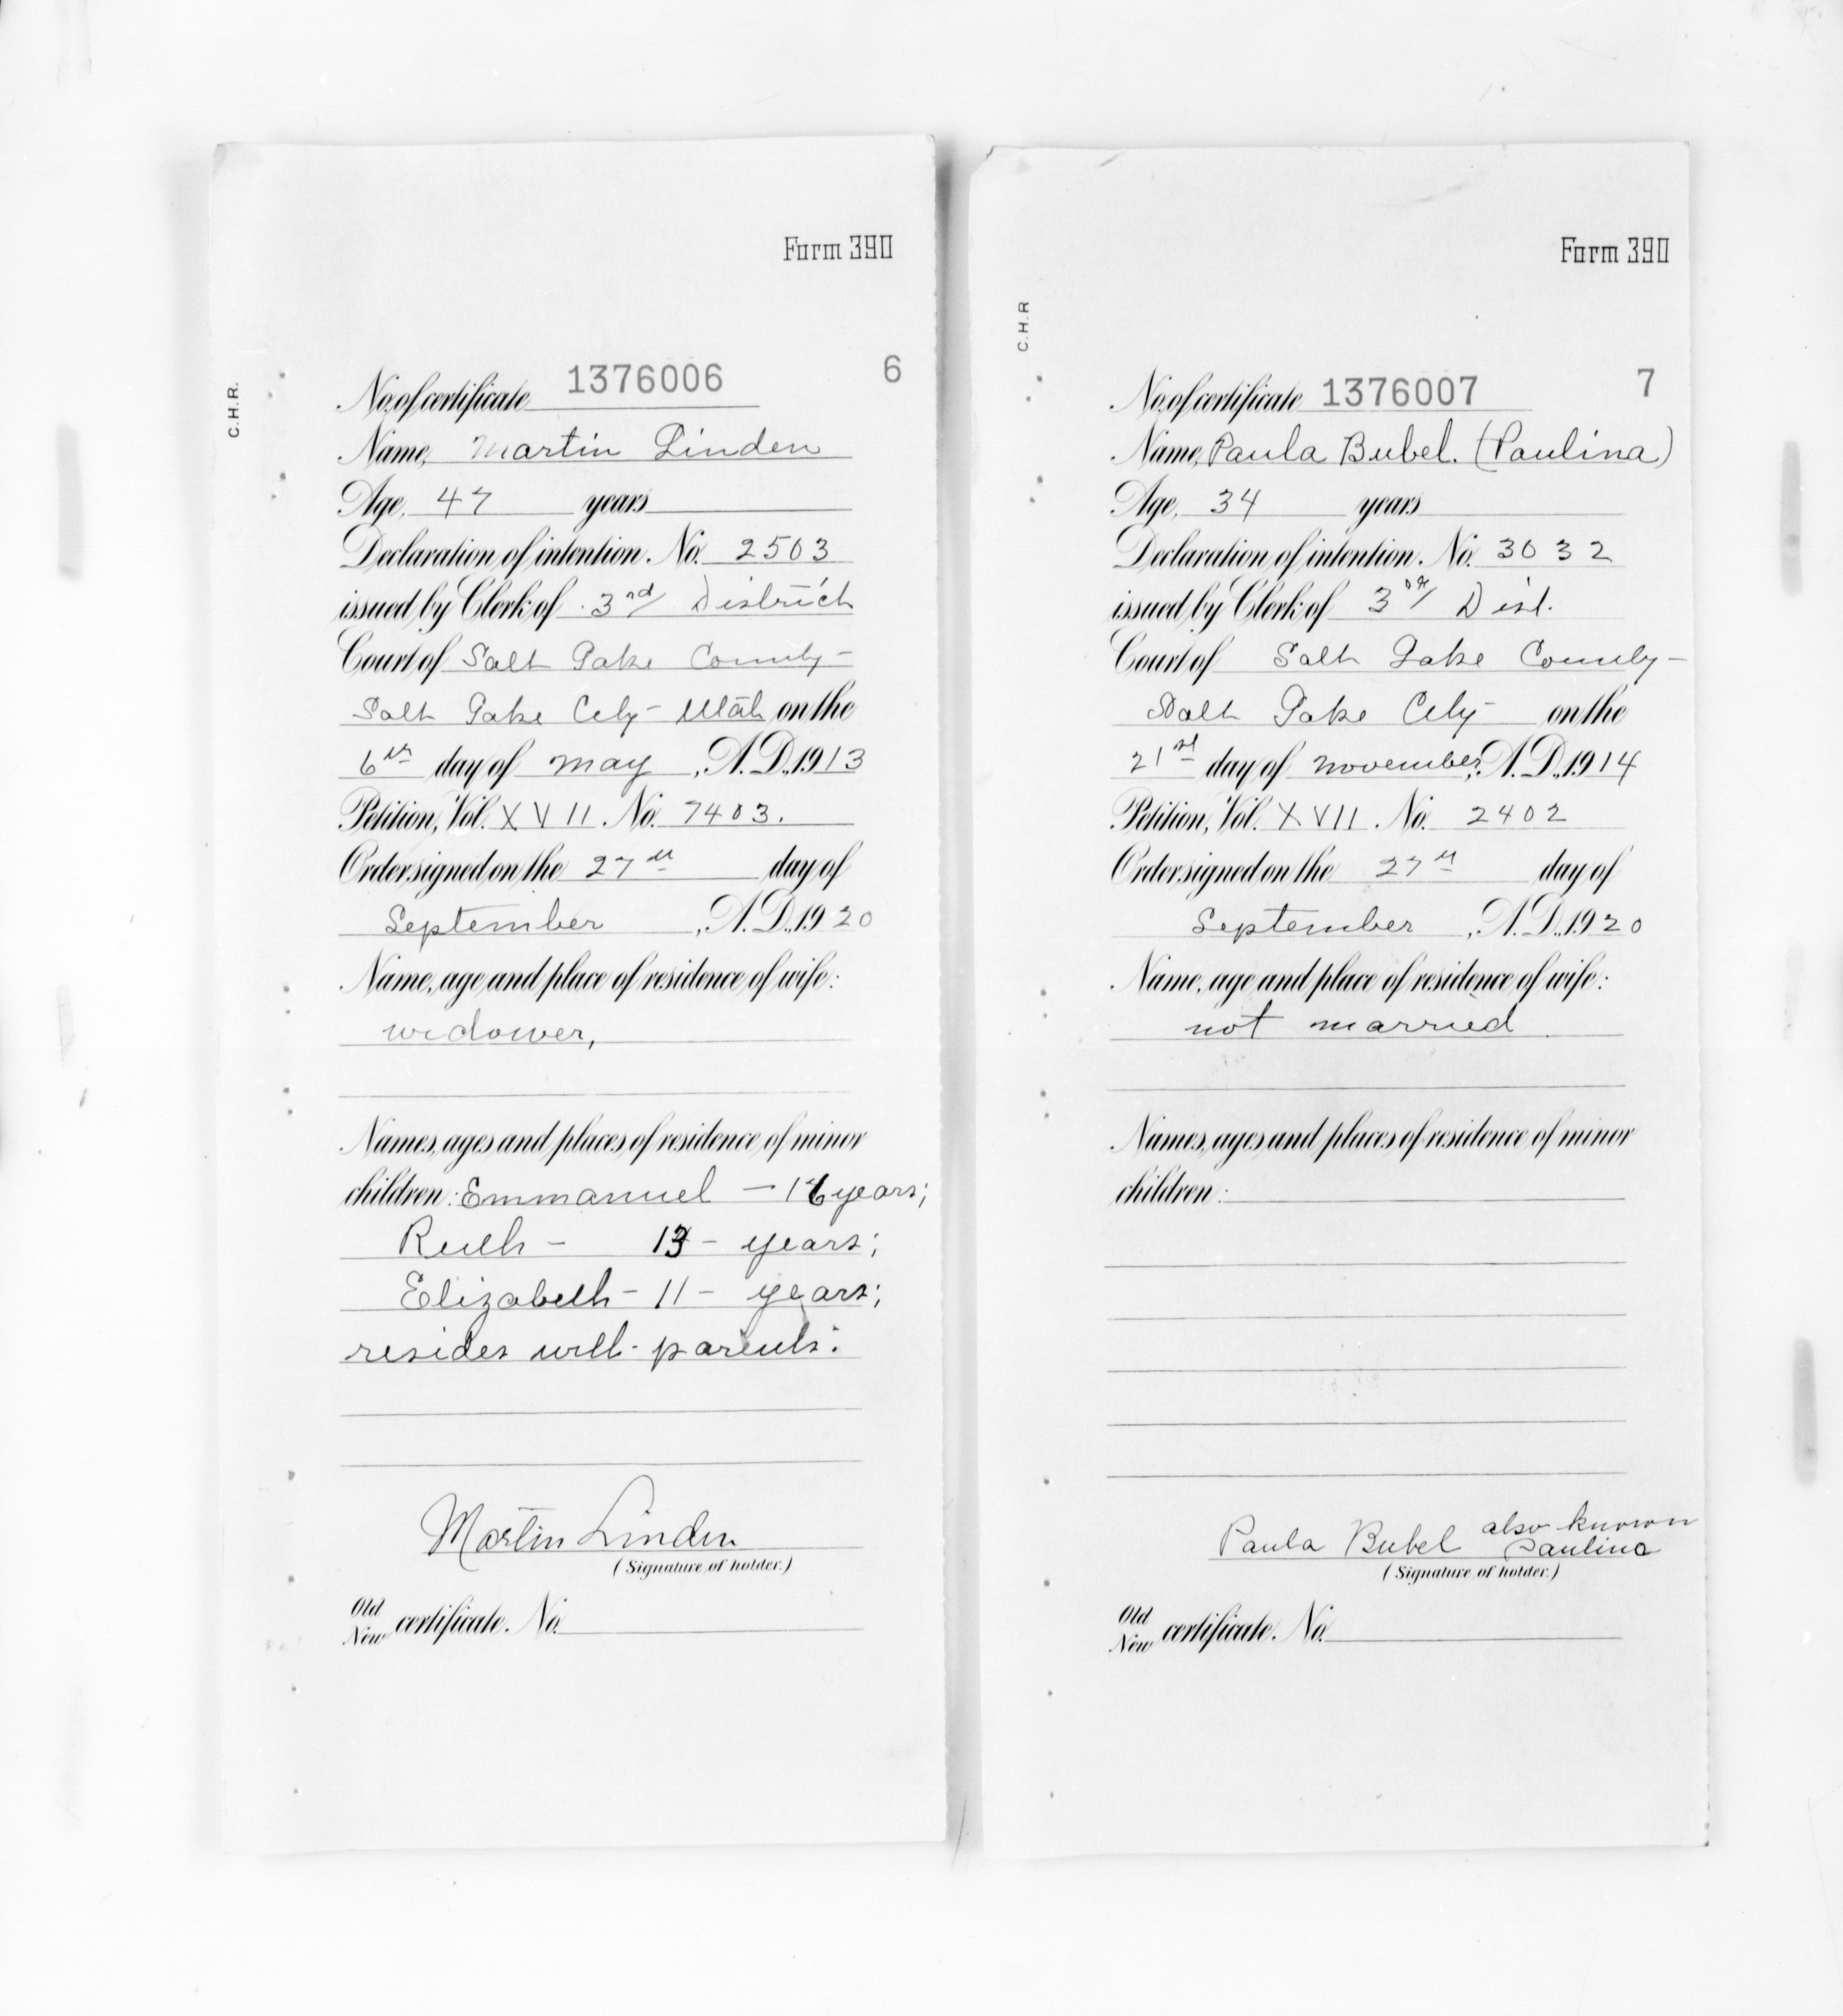 Form 390
C.H.R.
No. of certificate 1376006 6
Name, Martin Linden
Age, 47 years
Declaration of intention. No. 2503
issued by Clerk of 3rd District
Court of Salt Lake County-
Salt Lake City- Utah on the
6th day of May, A.D., 1913
Petition, Vol. XVII. No. 7403.
Order signed on the 27th day of
September, A.D., 1920
Name, age and place of residence of wife:
widower,
Names, ages and places of residence of minor
children: Emmanuel - 16 years;
Ruth - 13 - years;
Elizabeth - 11 - years;
resides with parents.
Martin Linden
(Signature of holder.)
Old
New certificate. No.
Form 390
C.H.R
No. of certificate 1376007 7
Name, Paula Bubel. (Paulina)
Age, 34 years
Declaration of intention. No. 3032
issued by Clerk of 3rd Dist.
Court of Salt Lake County-
Salt Lake City- on the
21st day of November, A.D., 1914
Petition, Vol. XVII. No. 2402
Order signed on the 27th day of
September, A.D., 1920
Name, age and place of residence of wife:
not married
Names, ages and places of residence of minor
children:
Paula Bubel also known
Paulina
(Signature of holder.)
Old
New certificate. No.